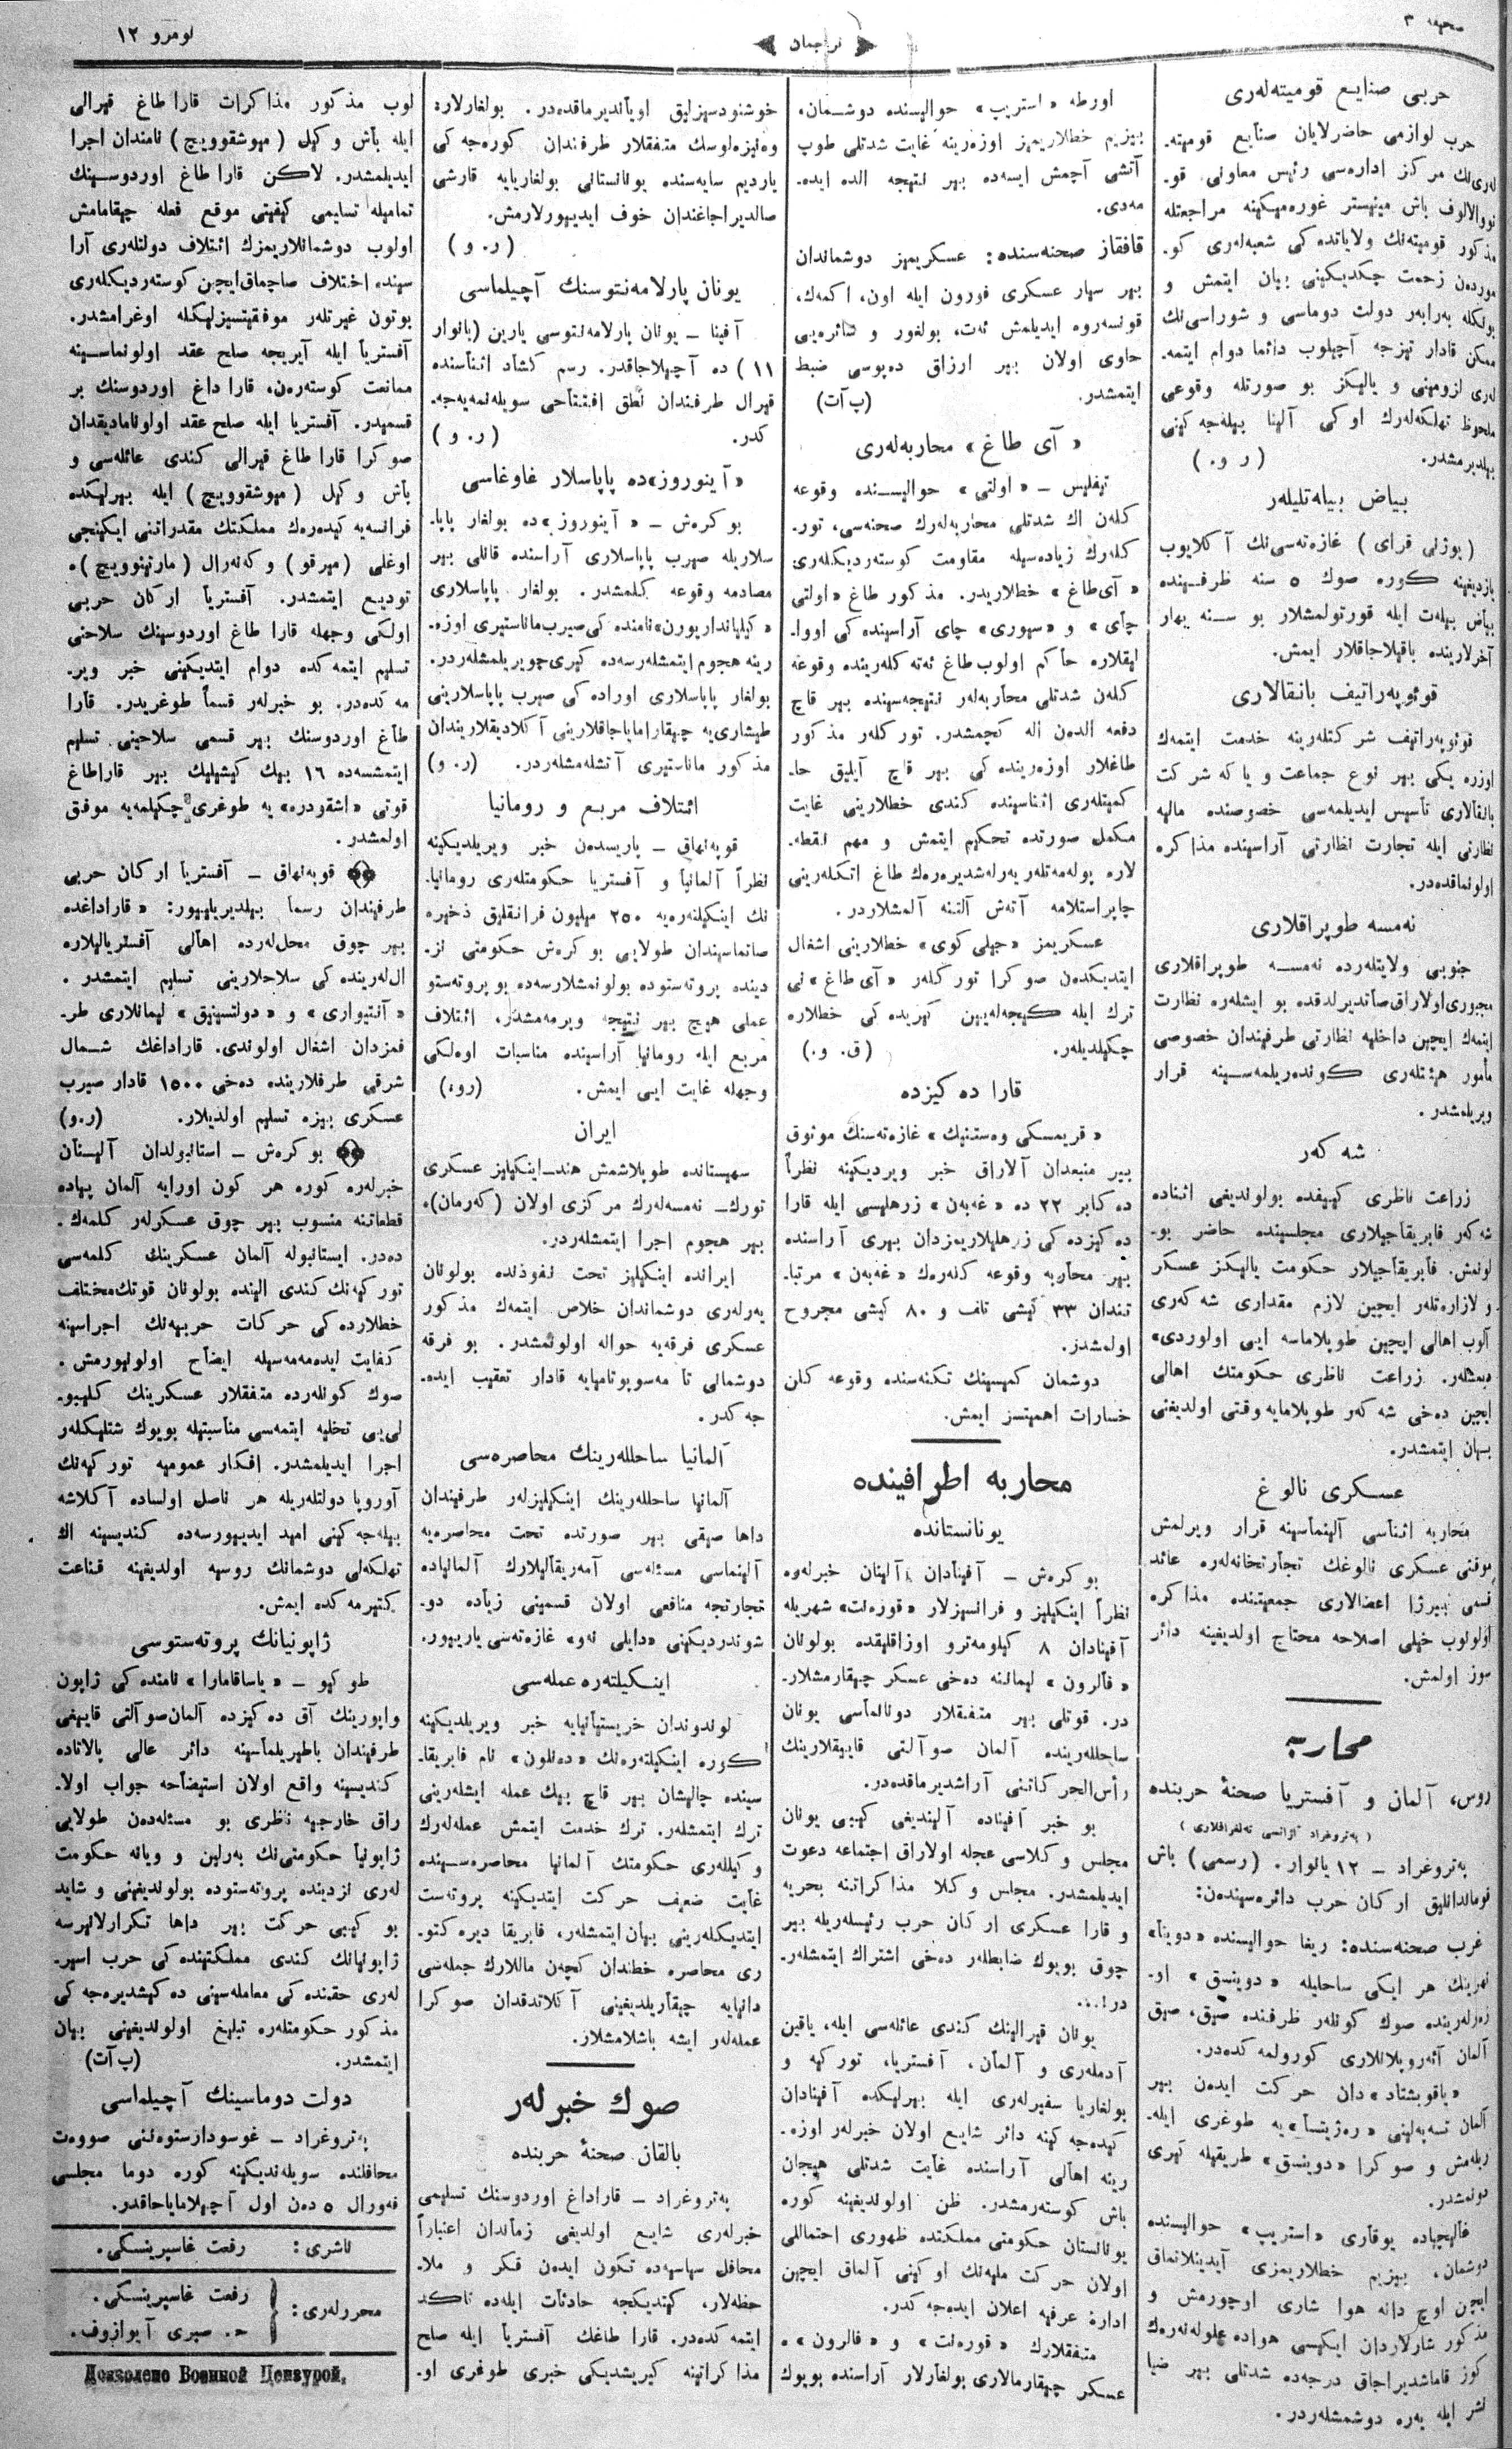 صحیفه ۳
ترجمان
نومرو ۱۲
حربی صنایع قومیته‌لەری
حرب لوازمی حاضرلایان صنایع قومیته‌
لەری‌نك مركز اداره‌سی رئیس معاونی قو۔
نووالالوف باش مینیستر غوره‌میكینه مراجعتله
مذكور قومیته‌نك ولایاتده كی شعبه‌لەری كو۔
موردەن زحمت چكدیكینی بیان ایتمش و
بونكله بەرابەر دولت دوماسی و شوراسی‌نك
ممكن قادار تیزجه آچیلوب دائما دوام ایتمه۔
لەری لزومینی و یالیكز بو صورتله وقوعی
ملحوظ تهلكه‌لەرك اوكی آلینا بیله‌جه‌كینی
بیلدیرمشدر. (ر و.)
بیاض بیله‌تلیلەر
(یوزنی قرای) غازه‌ته‌سی‌نك آكلایوب
یازدیغینه كوره صوك ۵ سنه ظرفینده
بیاض بیلەت ایله قورتولمشلار بو سنه بهار
آخرلارینده باقیلاجاقلار ایمش.
قوئوپه‌راتیف بانقالاری
قوئوپه‌راتیف شركتلەرینه خدمت ایتمەك
اوزره یكی بیر نوع جماعت و یا كه شركت
بانقالاری تأسیس ایدیلمه‌سی خصوصنده مالیه
نظارتی ایله تجارت نظارتی آراسینده مذاكره
اولونماقده‌در.
نه‌مسه طوپراقلاری
جنوبی ولایتلەرده نه‌مسه طوپراقلاری
مجبوری اولاراق صاتدیرلدقده بو ایشلەره نظارت
ایتمەك ایچین داخلیه نظارتی طرفیندان خصوصی
مأمور هیئتلەری كونده‌ریلمه‌سینه قرار
ویریلمشدر.
شه‌كەر
زراعت ناظری كییفده بولوندیغی اثناده
شه‌كەر فابریقاجیلاری مجلسینده حاضر بو۔
لونمش. فابریقاجیلار حكومت یالیكز عسكر
و لازاره‌تلەر ایچین لازم مقداری شه‌كەری
آلوب اهالی ایچین طوپلاماسه ایی اولوردی»
دیمشلەر. زراعت ناظری حكومتك اهالی
ایچین ده‌خی شه‌كەر طوپلامایه وقتی اولدیغنی
بیان ایتمشدر.
عسكری نالوغ
محاربه اثناسی آلینماسینه قرار ویرلمش
موقتی عسكری نالوغك تجارتخانه‌لەره عائد
قسمی بیرژا اعضالاری جمعیتنده مذاكره
اولولوب خیلی اصلاحه محتاج اولدیغینه دائر
سوز اولمش.
محاربه
روس، آلمان و آفستریا صحنۀ حربنده
(په‌تروغراد آژانسی ته‌لغرافلاری)
په‌تروغراد – ۱۲ یانوار. (رسمی) باش
قوماندانلیق اركان حرب دائره‌سیندەن:
غرب صحنه‌سنده: ریغا حوالیسنده «دوینا»
نهرینك هر ایكی ساحلیله «دوینسق» او۔
زەرلەرینده صوك كونلەر ظرفنده صیق، صیق
آلمان آئه‌روپلانلاری كورولمه كده‌در.
«یاقوبشتاد»دان حركت ایدەن بیر
آلمان تسه‌په‌لینی «ره‌ژیتسا»یه طوغری ایله۔
ریله‌مش و صوكرا «دوینسق» طریقیله كیری
دونمشدر.
غالیچیاده یوقاری «استریپ» حوالیسنده
دوشمان، بیزیم خطلاریمزی آیدینلاتماق
ایچین اوچ دانه هوا شاری اوچورمش و
مذكور شارلاردان ایكیسی هواده علوله‌نەرەك
كوز قاماشدیراجاق درجه‌ده شدتلی بیر ضیا
نشر ایله یەره دوشمشلەردر.
اورطه «استریپ» حوالیسنده دوشمان،
بیزیم خطلاریمز اوزەرینه غایت شدتلی طوپ
آتشی آچمش ایسه‌ده بیر نتیجه الده ایده۔
مه‌دی.
قافقاز صحنه‌سنده: عسكریمیز دوشماندان
بیر سیار عسكری فورون ایله اون، اكمەك،
قونسه‌روه ایدیلمش ئەت، بولغور و سائره‌یی
حاوی اولان بیر ارزاق ده‌پوسی ضبط
ایتمشدر. (پ آت)
«آی طاغ» محاربه‌لەری
تیفلیس – «اولتی» حوالیسنده وقوعه
كلەن اك شدتلی محاربه‌لەرك صحنه‌سی، تور۔
كلەرك زیاده‌سیله مقاومت كوستەردیكلەری
«آی‌طاغ» خطلاریدر. مذكور طاغ «اولتی
چای» و «سیوری» چای آراسینده كی اووا۔
لیقلاره حاكم اولوب طاغ ئه‌ته كلەرینده وقوعه
كلەن شدتلی محاربه‌لەر نتیجه‌سینده بیر قاچ
دفعه الدەن اله كچمشدر. توركلەر مذكور
طاغلار اوزەرینده كی بیر قاچ آیلیق حا۔
كمیتلەری اثناسینده كندی خطلارینی غایت
مكمل صورتده تحكیم ایتمش و مهم نقطه۔
لاره پوله‌مه‌تلەر یەرله‌شدیره‌رەك طاغ اتكلەرینی
چاپراستلامه آتەش آلتنه آلمشلاردر.
عسكریمز «جیلی كوی» خطلارینی اشغال
ایتدیكدەن صوكرا توركلەر «آی طاغ»نی
ترك ایله كیجه‌لەیین كریده كی خطلاره
چكیلدیلەر. (ق. و.)
قارا ده‌كیزده
«قریمسكی وه‌ستنیك» غازه‌ته‌سنك موثوق
بیر منبعدان آلاراق خبر ویردیكینه نظراً
ده‌كابر ۲۲ ده «غه‌بەن» زرهلیسی ایله قارا
ده‌كیزده كی زرهلیلاریمزدان بیری آراسنده
بیر محاربه وقوعه كلەرك «غه‌بەن» مرتبا۔
تندان ۳۳ كیشی تلف و ۸۰ كیشی مجروح
اولمشدر.
دوشمان كمیسینك تكنه‌سنده وقوعه كلن
خسارات اهمیتسز ایمش.
محاربه اطرافینده
یونانستانده
بوكرەش – آفینادان آلینان خبرلەره
نظراً اینكلیز و فرانسیزلار «قوزه‌نت» شهریله
آفینادان ۸ كیلومه‌ترو اوزاقلیقده بولونان
«فالرون» لیماننه ده‌خی عسكر چیقارمشلار۔
در. قوتلی بیر متفقلار دونانماسی یونان
ساحللەرینده آلمان صوآلتی قاییقلارینك
رأس‌الحركاتنی آراشدیرماقده‌در.
بو خبر آفیناده آلیندیغی كیبی یونان
مجلس وكلاسی عجله اولاراق اجتماعه دعوت
ایدیلمشدر. مجلس وكلا مذاكراتنه بحریه
و قارا عسكری اركان حرب رئیسلەریله بیر
چوق بویوك ضابطلەر ده‌خی اشتراك ایتمشلەر۔
در!...
یونان قیرالینك كندی عائله‌سی ایله، یاقین
آدملەری و آلمان، آفستریا، توركیه و
بولغاریا سفیرلەری ایله بیرلیكده آفینادان
كیده‌جه كینه دائر شایع اولان خبرلەر اوزه۔
رینه اهالی آراسنده غایت شدتلی هیجان
باش كوستەرمشدر. ظن اولوندیغینه كوره
یونانستان حكومتی مملكتده ظهوری احتماللی
اولان حركت ملیه‌نك اوكینی آلماق ایچین
ادارۀ عرفیه اعلان ایده‌جه كدر.
متفقلارك «قوره‌نت» و «فالرون»ه
عسكر چیقارمالاری بولغارلار آراسنده بویوك
خوشنودسیزلیق اویاندیرماقده‌در. بولغارلار:
وه‌نیزه‌لوسك متفقلار طرفندان كوره‌جه كی
یاردیم سایه‌سنده یونانستانی بولغاریایه قارشی
صالدیراجاغندان خوف ایدییورلارمش.
(ر. و)
یونان پارلامه‌نتوسنك آچیلماسی
آفینا – یونان پارلامه‌نتوسی یارین (یانوار
۱۱) ده آچیلاجاقدر. رسم كشاد اثناسنده
قیرال طرفندان نطق افتتاحی سویله‌نمه‌یه‌جه۔
كدر. (ر. و)
«آینوروز»ده پاپاسلار غاوغاسی
بوكرەش – «آینوروز»ده بولغار پاپا۔
سلاریله صیرب پاپاسلاری آراسنده قانلی بیر
مصادمه وقوعه كلمشدر. بولغار پاپاسلاری
«كیلیانداریورن» نامنده كی صیرب ماناستیری اوزه۔
رینه هجوم ایتمشلەرسه‌ده كیری چویریلمشلەردر.
بولغار پاپاسلاری اوراده كی صیرب پاپاسلارینی
طیشاری‌یه چیقارامایاجاقلارینی آكلادیقلاریندان
مذكور ماناستیری آتشله‌مشلەردر. (ر. و)
ائتلاف مربع و رومانیا
قوپه‌نهاق – پاریسدەن خبر ویریلدیكینه
نظراً آلمانیا و آفستریا حكومتلەری رومانیا۔
نك اینكیلتەره‌یه ۲۵۰ میلیون فرانقلیق ذخیره
صاتماسیندان طولایی بوكرەش حكومتی نز۔
دینده پروته‌ستوده بولونمشلارسه‌ده بو پروته‌ستو
عملی هیچ بیر نتیجه ویرمه‌مشدر. ائتلاف
مربع ایله رومانیا آراسینده مناسبات اوه‌لكی
وجهله غایت ایی ایمش. (رو:)
ایران
سیستانده طوپلاشمش هند–اینكیلیز عسكری
تورك–نه‌مسه‌لەرك مركزی اولان (كەرمان)ه
بیر هجوم اجرا ایتمشلەردر.
ایرانده اینكیلیز تحت نفوذنده بولونان
یەرلەری دوشماندان خلاص ایتمەك مذكور
عسكری فرقه‌یه حواله اولونمشدر. بو فرقه
دوشمانی تا مه‌سوپوتامیایه قادار تعقیب ایده۔
جه كدر.
آلمانیا ساحللەرینك محاصره‌سی
آلمانیا ساحللەرینك اینكیلیزلەر طرفیندان
داها صیقی بیر صورتده تحت محاصره‌یه
آلینماسی مسئله‌سی آمه‌ریقالیلارك آلمانیاده
تجارتجه منافعی اولان قسمینی زیاده دو۔
شوندردیكینی «دایلی نه‌و» غازه‌ته‌سی یازییور.
اینكیلتەره عمله‌سی
لوندوندان خریستیانیایه خبر ویریلدیكینه
كوره اینكیلتەره‌نك «ده‌نلون» نام فابریقا۔
سینده چالیشان بیر قاچ بیك عمله ایشلەرینی
ترك ایتمشلەر. ترك خدمت ایتمش عمله‌لەرك
وكیللەری حكومتك آلمانیا محاصره‌سینده
غایت ضعیف حركت ایتدیكینه پروته‌ست
ایتدیكلەرینی بیان ایتمشلەر، فابریقا دیره‌كتو۔
ری محاصره خطندان كچەن ماللارك جمله‌سی
دانیایه چیقاریلدیغینی آكلاتدقدان صوكرا
عمله‌لەر ایشه باشلامشلار.
صوك خبرلەر
بالقان صحنۀ حربنده
په‌تروغراد – قاراداغ اوردوسنك تسلیمی
خبرلەری شایع اولدیغی زماندان اعتباراً
محافل سیاسیه‌ده تكون ایدەن فكر و ملا۔
حظه‌لار، كیتدیكجه حادثات ایله‌ده تأكد
ایتمه كده‌در. قارا طاغك آفستریا ایله صلح
مذاكراتینه كیریشدیكی خبری طوغری او۔
لوب مذكور مذاكرات قارا طاغ قیرالی
ایله باش وكیل (میوشقوویچ) نامندان اجرا
ایدیلمشدر. لاكن قارا طاغ اوردوسینك
تمامیله تسلیمی كیفیتی موقع فعله چیقامامش
اولوب دوشمانلاریمزك ائتلاف دولتلەری آرا
سینده اختلاف صاچماق ایچین كوستەردیكلەری
بوتون غیرتلەر موفقیتسیزلیكله اوغرامشدر.
آفستریا ایله آیریجه صلح عقد اولونماسینه
ممانعت كوستەرەن، قارا داغ اوردوسنك بر
قسمیدر. آفستریا ایله صلح عقد اولونامادیقدان
صوكرا قارا طاغ قیرالی كندی عائله‌سی و
باش وكیل (میوشقوویچ) ایله بیرلیكده
فرانسه‌یه كیده‌رەك مملكتك مقدراتنی ایكینجی
اوغلی (میرقو) و كه‌نەرال (مارتینوویچ)ه
تودیع ایتمشدر. آفستریا اركان حربی
اولكی وجهله قارا طاغ اوردوسینك سلاحنی
تسلیم ایتمه كده دوام ایتدیكینی خبر ویر۔
مه كده‌در. بو خبرلەر قسماً طوغریدر. قارا
طاغ اوردوسنك بیر قسمی سلاحینی تسلیم
ایتمشسه‌ده ۱۶ بیك كیشیلیك بیر قاراطاغ
قوتی «اشقودره» یه طوغری چكیلمه‌یه موفق
اولمشدر.
قوپه‌نهاق – آفستریا اركان حربی
طرفیندان رسماً بیلدیریلییور: «قاراداغده
بیر چوق محل‌لەرده اهالی آفستریالیلاره
ال‌لەرینده كی سلاحلارینی تسلیم ایتمشدر.
«آنتیواری» و «دولتسینیق» لیمانلاری طر۔
فمزدان اشغال اولوندی. قاراداغك شمال
شرقی طرفلارینده ده‌خی ۱۵۰۰ قادار صیرب
عسكری بیزه تسلیم اولدیلار. (ر.و)
بوكرەش – استانبولدان آلینان
خبرلەره كوره هر كون اورایه آلمان پیاده
قطعاتنه منسوب بیر چوق عسكرلەر كلمه‌ك۔
ده‌در. ایستانبوله آلمان عسكرینك كلمه‌سی
توركیه‌نك كندی الینده بولونان قوتك مختلف
خطلارده كی حركات حربیه‌نك اجراسینه
كفایت ایده‌مه‌مه‌سیله ایضاح اولونیورمش.
صوك كونلەرده متفقلار عسكرینك كلیبو۔
لی‌یی تخلیه ایتمه‌سی مناسبتیله بویوك شنلیكلەر
اجرا ایدیلمشدر. افكار عمومیه توركیه‌نك
آوروپا دولتلەریله هر ناصل اولساده آكلاشه
بیله‌جه كینی امید ایدییورسه‌ده كندیسینه اك
تهلكه‌لی دوشمانك روسیه اولدیغینه قناعت
كتیرمه كده ایمش.
ژاپونیانك پروته‌ستوسی
طوكیو – «یاساقامارا» نامنده كی ژاپون
واپورینك آق ده‌كیزده آلمان صوآلتی قاییغی
طرفیندان باطیریلماسینه دائر عالی پالاتاده
كندیسینه واقع اولان استیضاحه جواب اولا۔
راق خارجیه ناظری بو مسئله‌دەن طولایی
ژاپونیا حكومتی‌نك بەرلین و ویانه حكومت
لەری نزدینده پروته‌ستوده بولوندیغینی و شاید
بو كیبی حركت بیر داها تكرارلانیرسه
ژاپونیانك كندی مملكتینده كی حرب اسیر۔
لەری حقینده كی معامله‌سینی ده‌كیشدیره‌جه كی
مذكور حكومتلەره تبلیغ اولوندیغینی بیان
ایتمشدر. (پ آت)
دولت دوماسینك آچیلماسی
په‌تروغراد – غوسودارستوه‌ننی صووەت
محافلنده سویله‌ندیكینه كوره دوما مجلسی
فه‌ورال ۵ دەن اول آچیلامایاجاقدر.
ناشری: رفعت غاسپرینسكی.
محررلەری: رفعت غاسپرینسكی.
ح. صبری آیوازوف.
Дозволено Военной Цензурой.